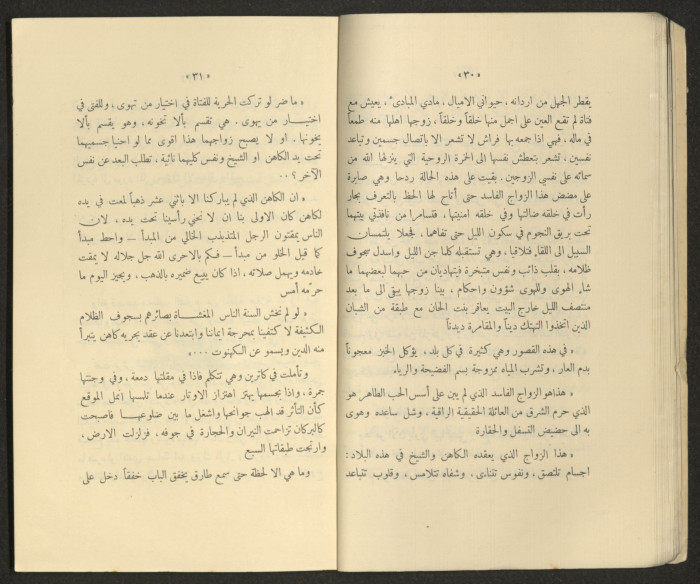 «٣٠»
يفطر الجهل من اردانه، حيواني الاميال، مادي المبادئ، يعيش مع
فتاة لم تقع العين على اجمل منها خلقاً وخلقاً، زوجها اهلها منه طمعاً
في ماله، فهي اذا جمعه بها فراش لا تشعر الا باتصال جسمين وتباعد
نفسين، تشعر بتعطش نفسها الى الخمرة الروحية التي ينزلها الله من
سمائه على نفسي الزوجين. بقيت على هذه الحالة ردحاً وهي صابرة
على مضض هذا الزواج الفاسد حتى أتاح لها الحظ بالتعرف بجار
رأت في خلقه ضالتها وفي خلقه امنيتها، فتسامرا من نافذتي بيتهما
تحت بريق النجوم في سكون الليل حتى تفاهما، فجعلا يلتمسان
السبيل الى اللقاء فتلاقيا، وهي تستقبله كلما جن الليل واسدل سجوف
ظلامه، بقلب ذائب ونفس متبخرة فيتهاديان من حبهما لبعضهما ما
شاء الهوى وللهوى شؤون واحكام، بينا زوجها يبقى الى ما بعد
منتصف الليل خارج البيت يعاقر بنت الحان مع طبقة من الشبان
الذين اتخذوا التهتك ديناً والمقامرة ديدنا
« في هذه القصور وهي كثيرة في كل بلد، يؤكل الخبز معجوناً
بدم العار، وتشرب المياه ممزوجة بسم الفضيحة والرياء
« هذا هو الزواج الفاسد الذي لم يبن على أسس الحب الطاهر هو
الذي حرم الشرق من العائلة الحقيقية الراقية، وشل ساعده وهوى
به الى حضيض التسفل والحقارة
« هذا الزواج الذي يعقده الكاهن والشيخ في هذه البلاد:
اجسام تلتصق، ونفوس تتنادى، وشفاه تتلامس، وقلوب تتباعد
«٣١»
« ما ضر لو تركت الحرية للفتاة في اختيار من تهوى، وللفتى في
اختيار من يهوى. هي تقسم بألا تخونه، وهو يقسم بألا
يخونها. او لا يصبح زواجهما هذا اقوى مما لو احنيا جسميهما
تحت يد الكاهن او الشيخ ونفس كليهما نائية، تطلب البعد عن نفس
الآخر؟..
« ان الكاهن الذي لم يباركنا الا باثني عشر ذهباً لمعت في يده
لكاهن كان الاولى بنا ان لا نحني رأسينا تحت يده، لان
الناس يمقتون الرجل المتذبذب الخالي من المبدأ – واحط مبدأ
كما قيل الخلو من مبدأ – فكم بالاحرى الله جل جلاله لا يمقت
خادمه ويهمل صلاته، اذا كان يبيع ضميره بالذهب، ويجيز اليوم ما
حرّمه أمس
« لو لم نخش السنة الناس المغشاة بصائرهم بسجوف الظلام
الكثيفة لاكتفينا بمحرجة ايماننا وابتعدنا عن عقد يجريه كاهن يتبرأ
منه الدين ويسمو عن الكهنوت ...»
وتأملت في كاترين وهي تتكلم فاذا في مقلتها دمعة، وفي وجنتها
جمرة، واذا بجسمها يهتز اهتزاز الاوتار عندما تلمسها انمل الموقع
كأن التأثر قد الهب جوانحها واشغل ما بين ضلوعها فاصبحت
كالبركان تزاحمت النيران والحجارة في جوفه، فزلزلت الارض،
وارتجت طبقاتها السبع
وما هي الا لحظة حتى سمع طارق يخفق الباب خفقاً دخل على